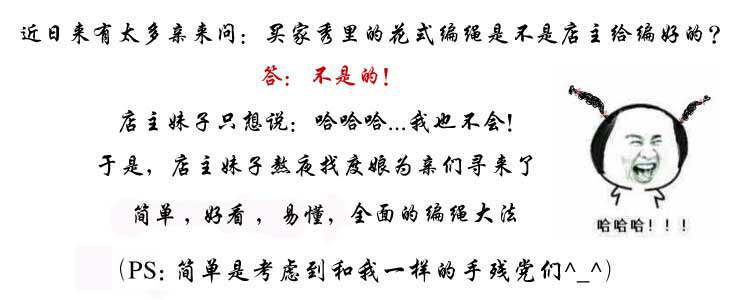 近日来有太多亲来问：买家秀里的花式编绳是不是店主给编好的？
答：不是的！
店主妹子只想说：哈哈哈...我也不会！
于是，店主妹子熬夜找度娘为亲们寻来了
简单，好看，易懂，全面的编绳大法
哈哈哈！！！
（PS：简单是考虑到和我一样的手残党们^_^）